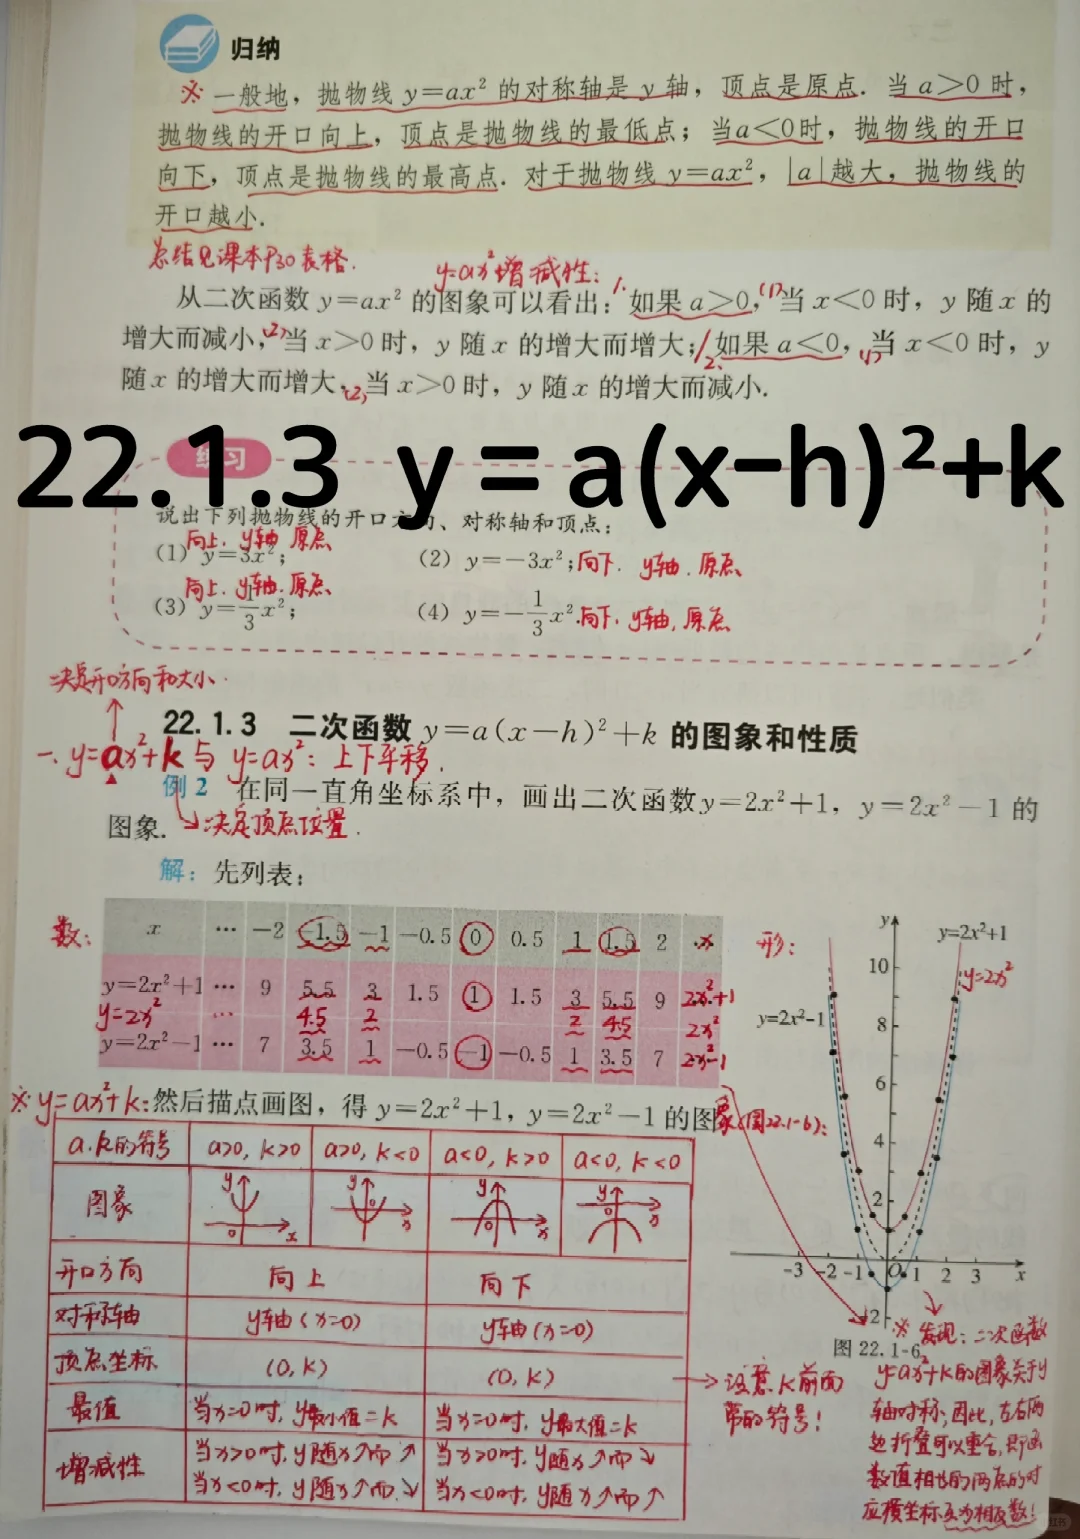 归纳
※ 一般地，抛物线 y=ax² 的对称轴是 y 轴，顶点是原点．当 a>0 时，
抛物线的开口向上，顶点是抛物线的最低点；当a<0时，抛物线的开口
向下，顶点是抛物线的最高点．对于抛物线 y=ax²，|a|越大，抛物线的
开口越小．
总结见课本P30表格．
y=ax²增减性：
从二次函数 y=ax² 的图象可以看出：1.如果 a>0，(1)当 x<0 时，y 随 x 的
增大而减小，(2)当 x>0 时，y 随 x 的增大而增大；/2.如果 a<0，(1)当 x<0 时，y
随 x 的增大而增大，(2)当 x>0 时，y 随 x 的增大而减小．
22.1.3 y=a(x-h)²+k
练习
说出下列抛物线的开口方向、对称轴和顶点：
向上．y轴 原点
(1) y=3x²； (2) y=-3x²；向下．y轴．原点
向上．y轴．原点
(3) y=1/3x²； (4) y=-1/3x²．向下．y轴，原点
决定开口方向和大小．
22.1.3 二次函数 y=a(x-h)²+k 的图象和性质
一、y=ax²+k 与 y=ax²：上下平移．
例2 在同一直角坐标系中，画出二次函数y=2x²+1，y=2x²-1 的
图象．决定顶点位置．
解：先列表：
数：
x … -2 -1.5 -1 -0.5 0 0.5 1 1.5 2 … x
y=2x²+1 … 9 5.5 3 1.5 1 1.5 3 5.5 9 2x²+1
y=2x² … 4.5 2 2 4.5 2x²
y=2x²-1 … 7 3.5 1 -0.5 -1 -0.5 1 3.5 7 2x²-1
形：
y
y=2x²+1
y=2x²
y=2x²-1
10
8
6
4
2
-3 -2 -1 O 1 2 3 x
-2
图 22.1-6
※y=ax²+k：然后描点画图，得 y=2x²+1，y=2x²-1 的图象(图22.1-6)：
a．k的符号 a>0，k>0 a>0，k<0 a<0，k>0 a<0，k<0
图象 y 0 x y 0 x y 0 x y 0 x
开口方向 向上 向下
对称轴 y轴（x=0） y轴（x=0）
顶点坐标 (0，k) (0，k)
最值 当x=0时，y最小值=k 当x=0时，y最大值=k
增减性 当x>0时，y随x↗而↗ 当x>0时，y随x↗而↘
当x<0时，y随x↗而↘ 当x<0时，y随x↗而↗
注意k前面
带的符号！
※发现：二次函数
y=ax²+k的图象关于y
轴对称，因此，左右两
边折叠可以重合，即函
数值相等的两点的对
应横坐标互为相反数！